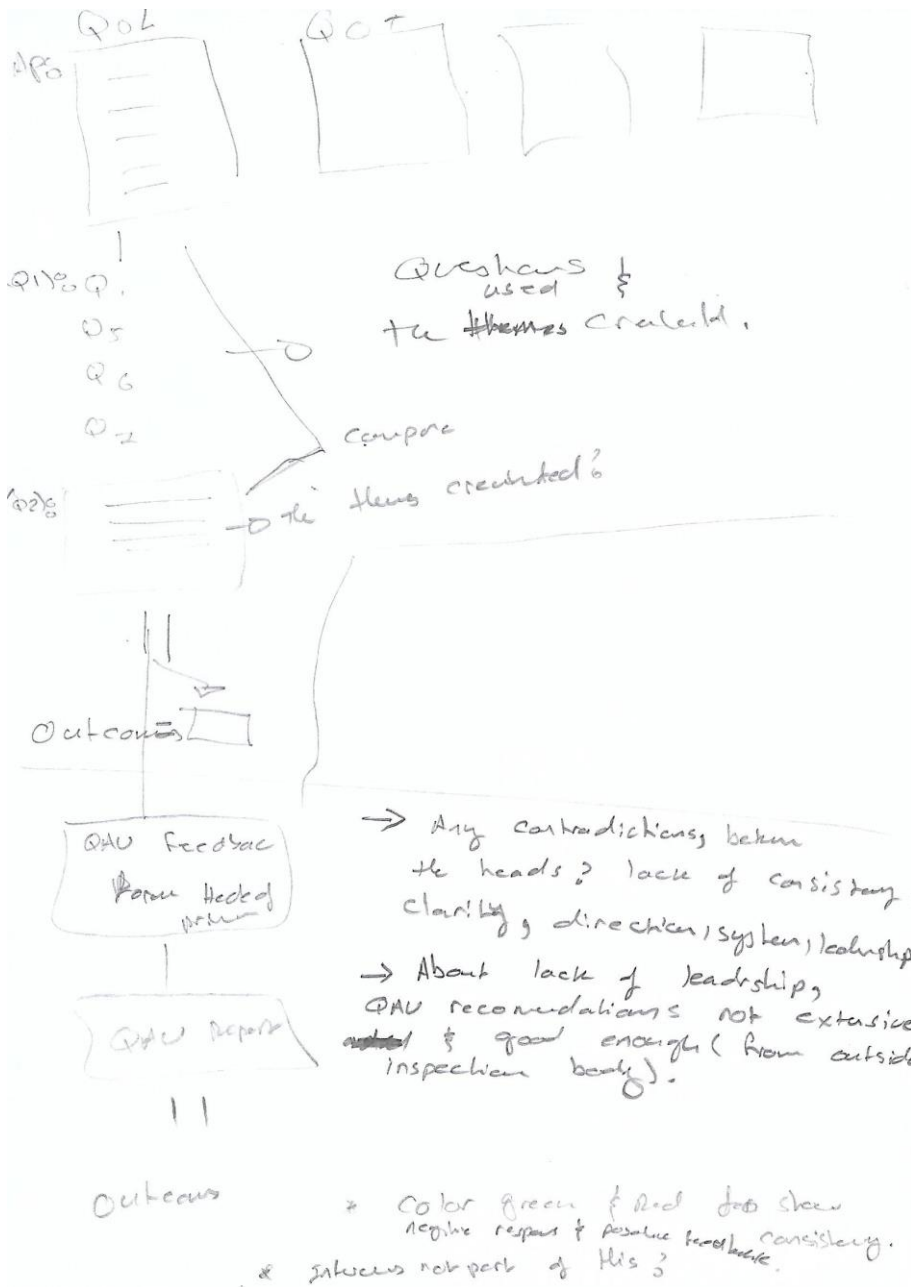 QOL
QOT
Q1)% Q1
Q5
Q6
Q7
Questions &
used
the themes created.
Compare
Q2)%
the thems creainted?
Outcomes
QAU Feedbac
Form Head of
QAU Report
Outcoms
→ Any contradictions, betwen
the heads? lack of consistany
clarity, direction, system, leadership
→ About lack of leadrship,
QAU recomendations not extasive
& good enough (from outside
inspection body).
* Color green & Red too show
negitive respons & posative feedback consistency.
* not part of this?